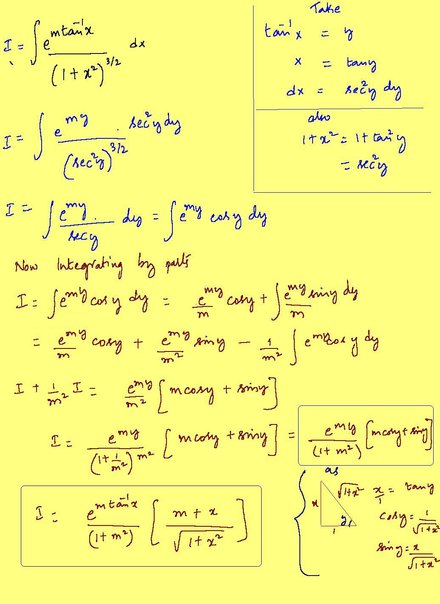 I = ∫ e^(m tan⁻¹x) / (1 + x²)^(3/2) dx
Take
tan⁻¹x = y
x = tany
dx = sec²y dy
also
1+x² = 1+tan²y
= sec²y
I = ∫ e^(my) / (sec²y)^(3/2) . sec²y dy
I = ∫ e^(my) / secy . dy = ∫ e^(my) cosy dy
Now Integrating by parts
I = ∫ e^(my) cosy dy = e^(my)/m cosy + ∫ e^(my)/m siny dy
= e^(my)/m cosy + e^(my)/m² siny - 1/m² ∫ e^(my) cosy dy
I + 1/m² I = e^(my)/m² [mcosy + siny]
I = e^(my) / (1+1/m²)m² [mcosy + siny] = e^(my) / (1+m²) [mcosy + siny]
I = e^(m tan⁻¹x) / (1+m²) [ m + x / √(1+x²) ]
as
x √(1+x²) 1 y
x/1 = tany
cosy = 1/√(1+x²)
siny = x/√(1+x²)